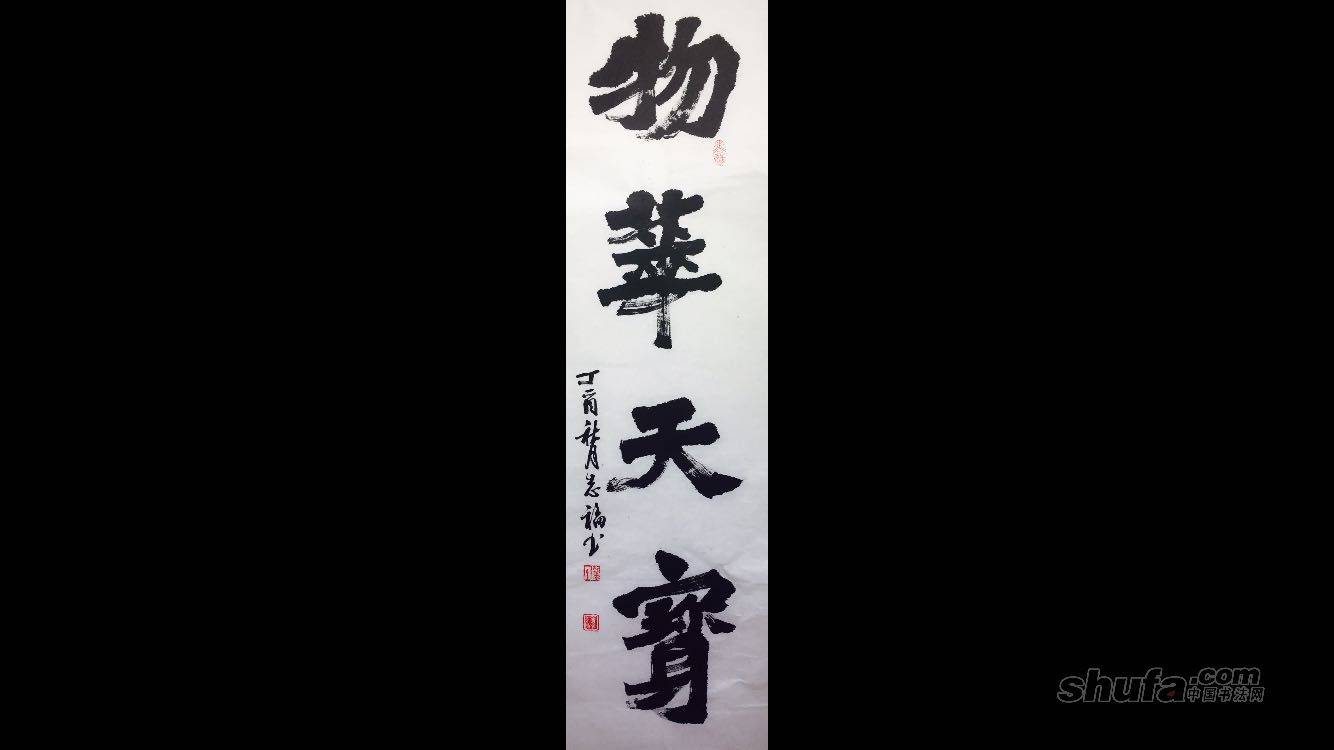 物華天寶
丁酉秋月志福书
shufa.com
中国书法网